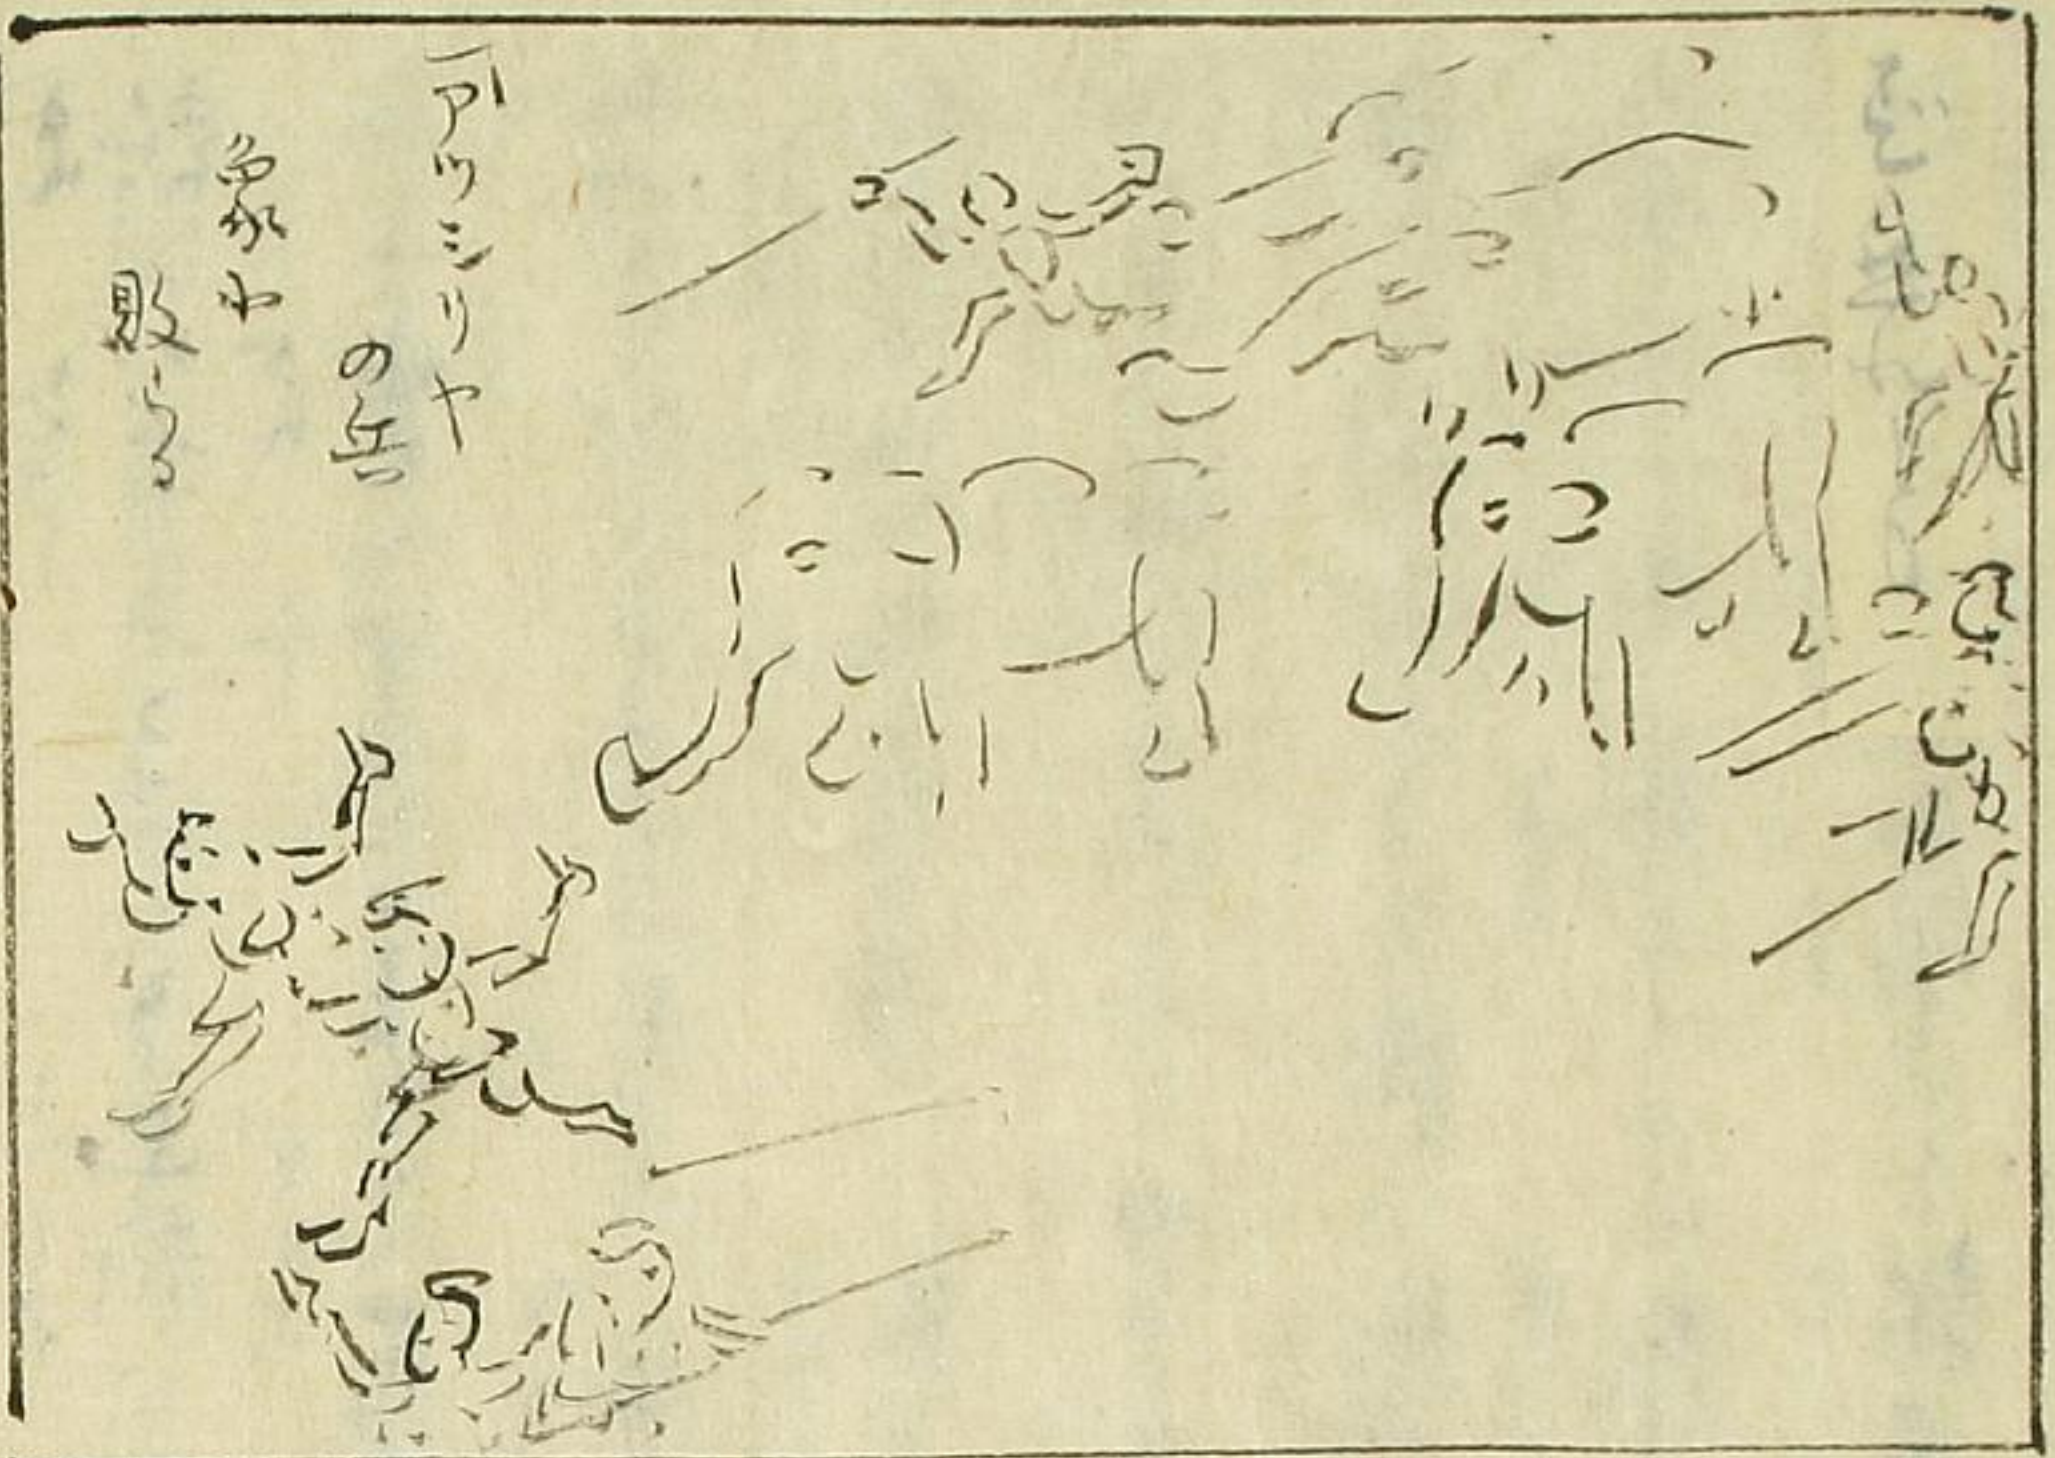 アツシリヤ
の兵
象に
敗らる